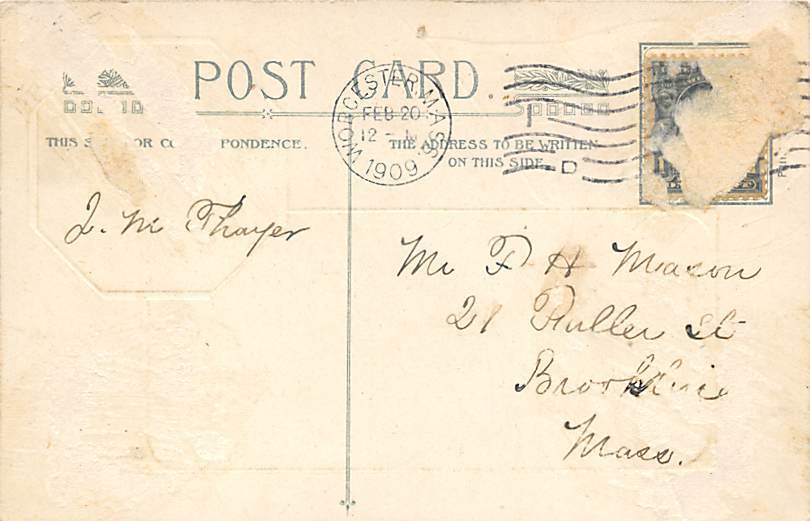 POST CARD.
WORCESTER, MASS.
FEB 20
12 -
1909
D
THIS S OR CO PONDENCE.
THE ADDRESS TO BE WRITTEN
ON THIS SIDE.
J. M Thayer
Mr F H Mason
21 Fuller St
Mass.